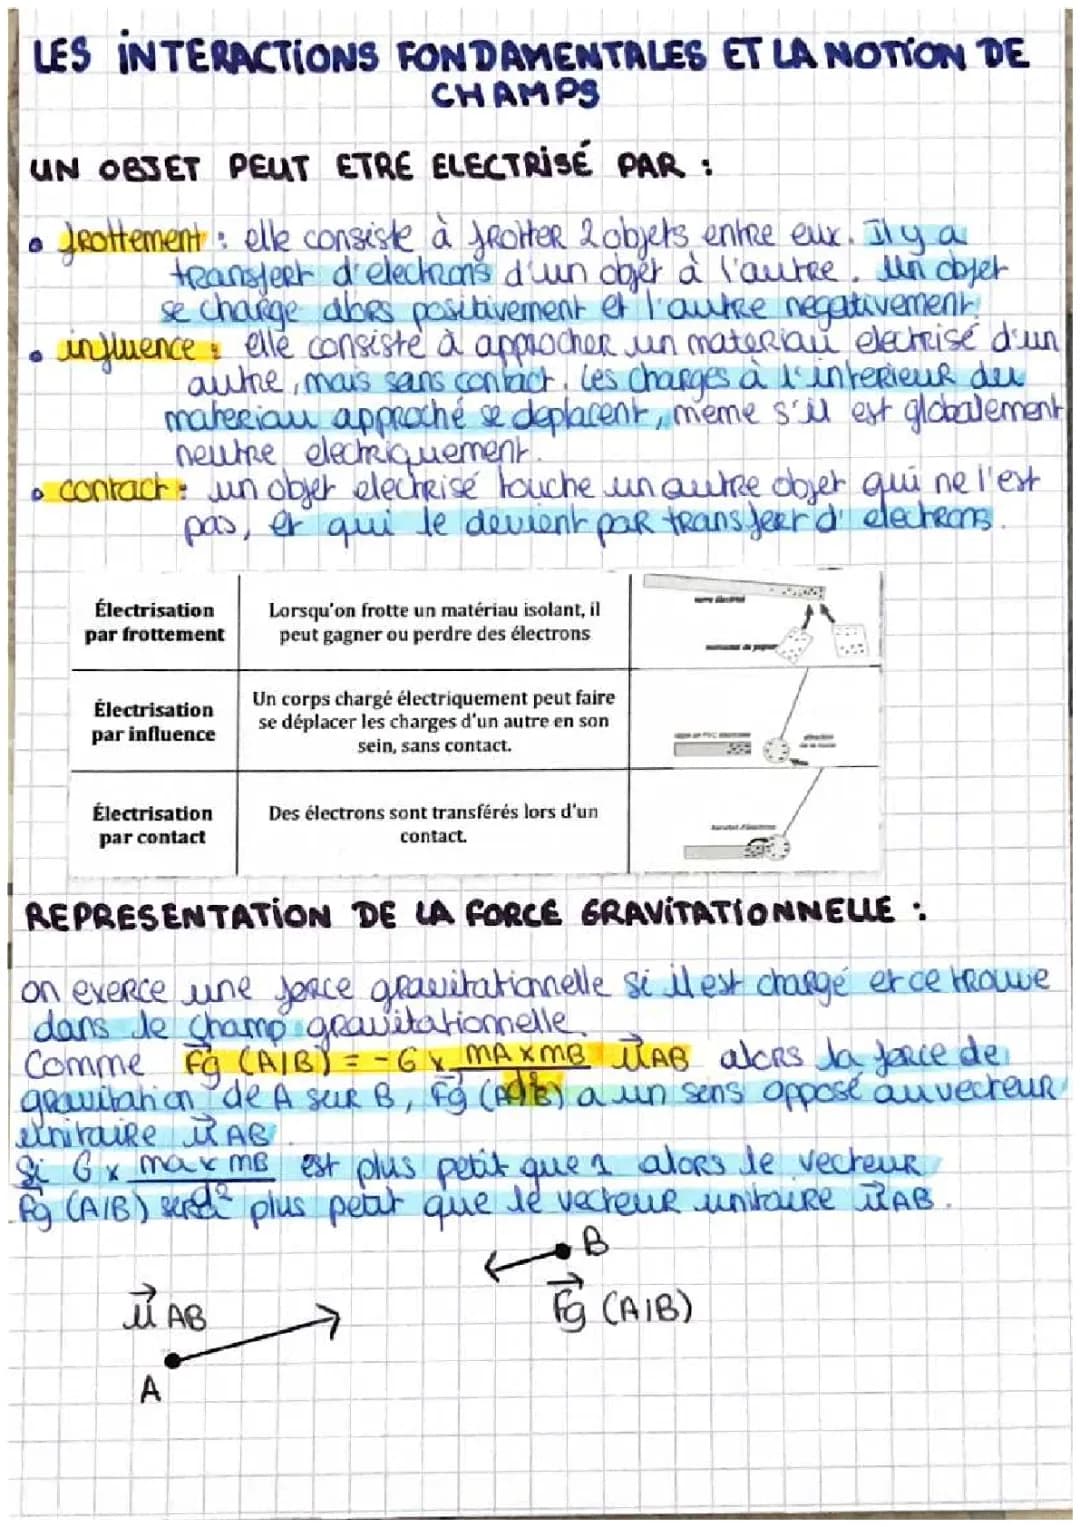 LES INTERACTIONS FONDAMENTALES ET LA NOTION DE
CHAMPS
UN OBJET PEUT ETRE ELECTRISÉ PAR :
• frottement : elle consiste à frotter 2 objets entre eux. Il y a
transfert d'electrons d'un objet à l'autre. Un objet
se charge alors positivement et l'autre negativement.
• influence : elle consiste à approcher un materiau electrisé d'un
autre, mais sans contact. Les charges à l'interieur du
materiau approché se deplacent, meme s'il est globalement
neutre electriquement.
• contact : un objet electrisé touche un autre objet qui ne l'est
pas, et qui le devient par transfert d'electrons.
Électrisation
par frottement
Lorsqu'on frotte un matériau isolant, il
peut gagner ou perdre des électrons
Électrisation
par influence
Un corps chargé électriquement peut faire
se déplacer les charges d'un autre en son
sein, sans contact.
Électrisation
par contact
Des électrons sont transférés lors d'un
contact.
REPRESENTATION DE LA FORCE GRAVITATIONNELLE :
on exerce une force gravitationnelle si il est chargé et ce trouve
dans le champ gravitationnelle.
Comme Fg (A/B) = - G x mA x mB / d² uAB alors la force de
gravitation de A sur B, Fg (A/B) a un sens opposé au vecteur
unitaire uAB.
Si G x ma x mB / d² est plus petit que 1 alors le vecteur
Fg (A/B) sera plus petit que le vecteur unitaire uAB.
B
Fg (A/B)
u AB
A